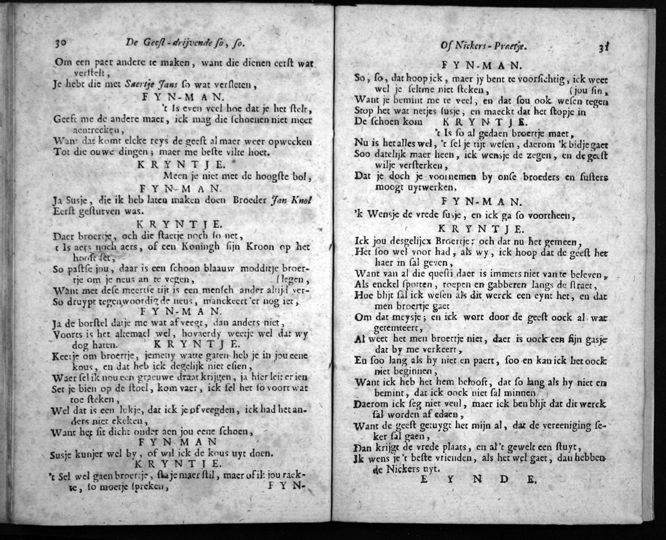 30 De Geest-drijvende so, so.
Om een paer andere te maken, want die dienen eerst wat
verstelt,
Je hebt die met Saertje Jans so wat versleten,
FYN-MAN.
't Is even veel hoe dat je het stelt,
Geeft me de andere maer, ick mag die schoenen niet meer
aentrecken,
Want dat komt elcke reys de geest al maer weer opwecken
Tot die ouwe dingen; maer me beste vilte hoet.
KRYNTJE.
Meen je niet met de hoogste bol,
FYN-MAN.
Ja Susje, die ik heb laten maken doen Broeder Jan Knol
Eerst gesturven was.
KRYNTJE.
Daer broertje, och die staetje noch so net,
't Is aers noch aers, of een Koningh sijn Kroon op het
hooft set,
So pastse jou, daar is een schoon blaauw modditje broer-
tje om je neus an te vegen, (legen,
Want met dese meertse tijt is een mensch ander altijd ver-
So druypt tegenwoordig de neus, manckeert 'er nog iet,
FYN-MAN.
Ja de borstel datje me wat af veegt, dan anders niet,
Voorts is het altemael wel, hovaerdy weetje wel dat wy
dog haten. KRYNTJE.
Keetje om broertje, jemeny watte gaten heb je in jou eene
kous, en dat heb ick degelijk niet esien,
Waer sel ik nou een graeuwe draat krijgen, ja hier leit er ien
Set je bien op de stoel, kom vaer, ick sel het so voort wat
toe steken,
Wel dat is een lukje, dat ick je of veegden, ick had het an-
ders niet ekeken,
Want het sit dicht onder aen jou eene schoen,
FYN-MAN
Susje kunjer wel by, of wil ick de kous uyt doen.
KRYNTJE.
't Sel wel gaen broertje, sta je maer stil, maer of ik jou raek-
te, so moetje spreken, FYN-
Of Nickers-Praetje. 31
FYN-MAN.
So, so, dat hoop ick, maer jy bent te voorsichtig, ick weet
wel je selt me niet steken, (jou sin,
Want je bemint me te veel, en dat sou ook wesen tegen
Stop het wat netjes susje; en maeckt dat het stopje in
De schoen kom KRYNTJE.
't Is so al gedaen broertje maet,
Nu is het alles wel, 't sel je rijt wesen, daerom 'k bidje gaet
Soo datelijk maer heen, ick wensje de zegen, en de geest
wilje versterken,
Dat je doch je voornemen by onse broeders en susters
moogt uytwerken.
FYN-MAN.
'k Wensje de vrede susje, en ick ga so voortheen,
KRYNTJE.
Ick jou desgelijcx Broertje: och dat nu het gemeen,
Het soo wel voor had, als wy, ick hoop dat de geest het
haer in sal geven,
Want van al die questi daer is immers niet van te beleven,
Als enckel spotten, roepen en gabberen langs de straet,
Hoe blijt sal ick wesen als dit werck een eynt het, en dat
men broertje gaet
Om dat meysje; en ick wort door de geest oock al wat
getemteert,
Al weet het men broertje niet, daer is oock een sijn gasje
dat by me verkeert,
En soo lang als hy niet en paert, soo en kan ick het oock
niet beginnen,
Want ick heb het hem belooft, dat so lang als hy niet en
bemint, dat ick oock niet sal minnen
Daerom ick seg niet veul, maer ick ben blijt dat dit werck
sal worden af edaen,
Want de geest getuygt het mijn al, dat de vereeniging se-
ker sal gaen,
Dan krijgt de vrede plaats, en al't gewelt een stuyt,
Ik wens je 't beste vrienden, als het wel gaet, dan hebben
de Nickers uyt.
EYNDE.